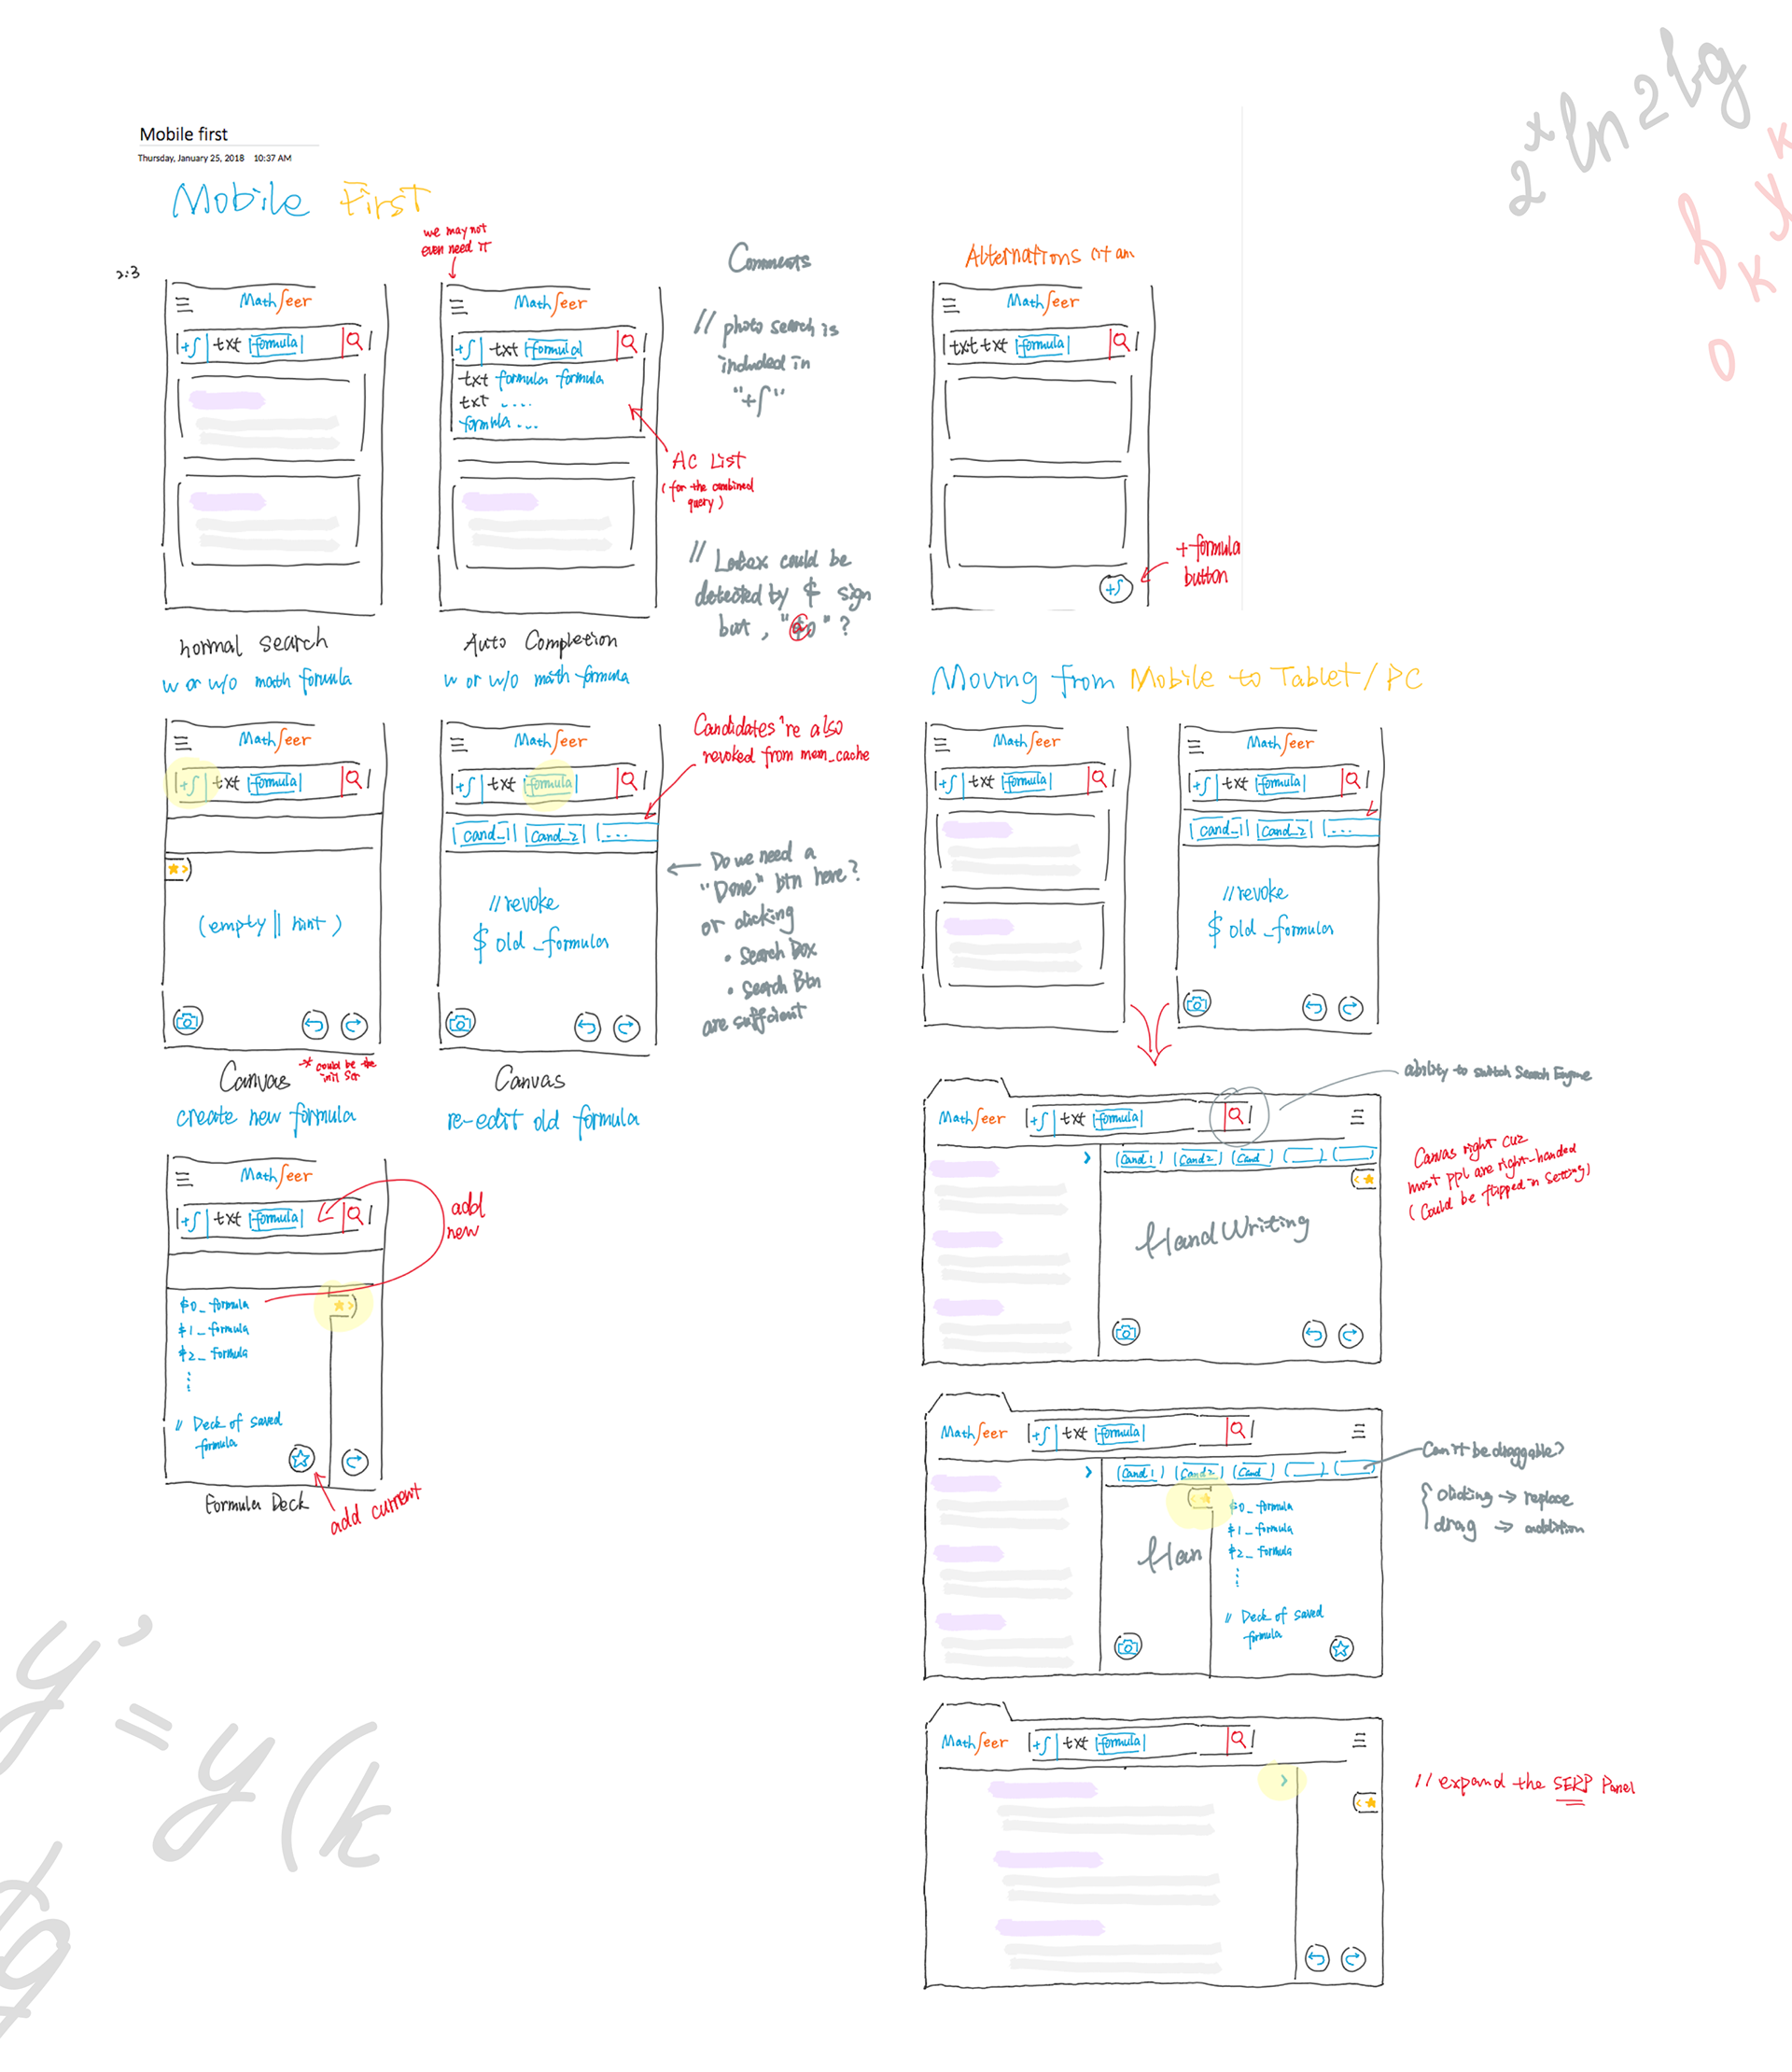 Mobile first
Thursday, January 25, 2018 10:37 AM
Mobile First
2:3
Math Seer
+∫ txt formula
normal search
w or w/o math formula
we may not
even need it
Math Seer
+∫ txt formula
txt formula formula
txt ....
formula ...
AC List
(for the combined
query)
Auto Completion
w or w/o math formula
Comments
// photo search is
included in
"+∫"
// Latex could be
detected by $ sign
but, " "?
Alternations
Math Seer
txt txt formula
+∫
+ formula
button
Math Seer
+∫ txt formula
(empty || hint)
Canvas
* could be the
init Scr
create new formula
Math Seer
+∫ txt formula
cand_1 cand_2 ...
// revoke
$ old_formula
Canvas
re-edit old formula
Candidates're also
revoked from mem_cache
Do we need a
"Done" btn here?
or clicking
• search box
• search Btn
are sufficient
Math Seer
+∫ txt formula
$0_ formula
$1_ formula
$2_ formula
// Deck of saved
formula
Formula Deck
add
new
add current
Moving from Mobile to Tablet/PC
Math Seer
+∫ txt formula
Math Seer
+∫ txt formula
cand_1 cand_2 ...
// revoke
$ old_formula
Math Seer +∫ txt formula
(Cand1) (Cand2) (Cand)
HandWriting
ability to switch Search Engine
Canvas right cuz
most ppl are right-handed
(Could be flipped in setting)
Math Seer +∫ txt formula
(Cand1) (Cand2) (Cand)
Han
$0_ formula
$1_ formula
$2_ formula
// Deck of saved
formula
Can it be draggable?
clicking → replace
drag → addition
Math Seer +∫ txt formula
// expand the SERP Panel
2ˣ ln 2 lg
y' = y(k